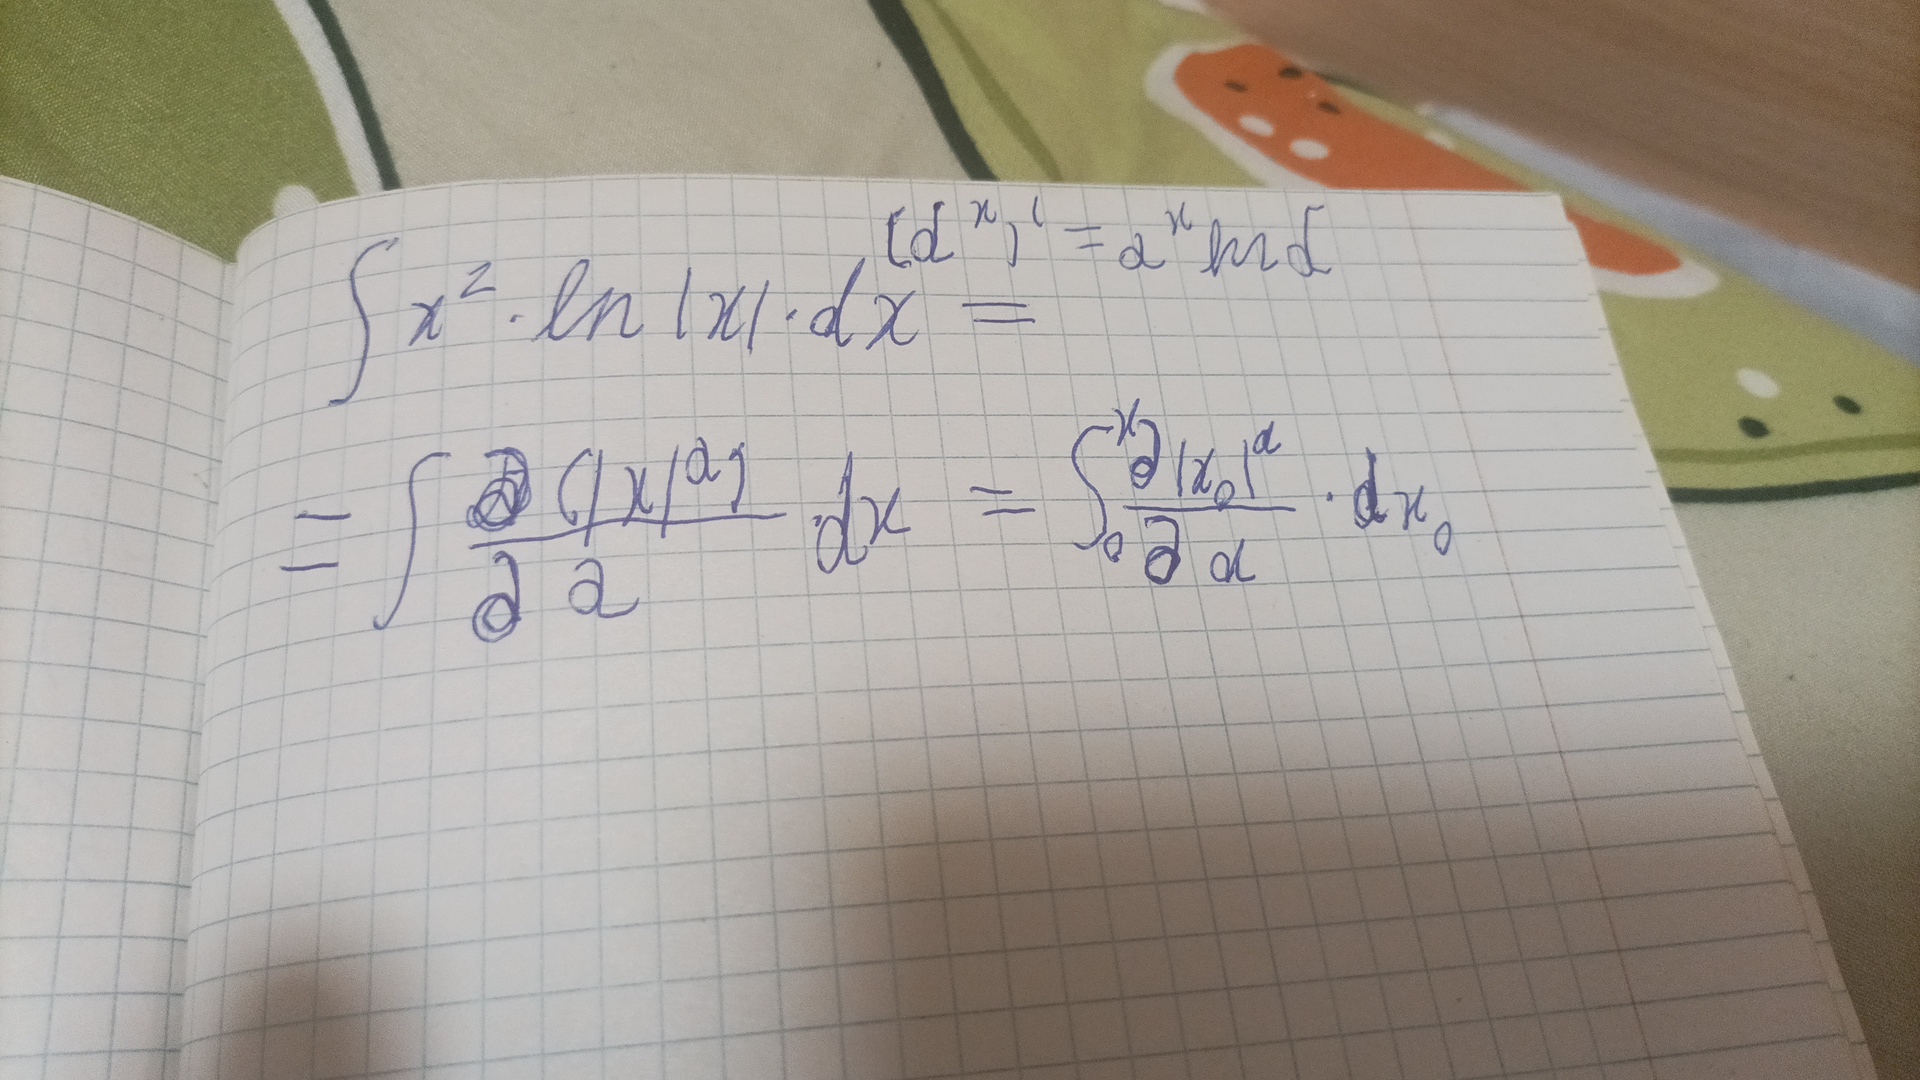 (a^x)' = a^x ln a
∫ x² · ln |x| · dx =
= ∫ ∂(|x|^a)/∂a dx = ∫₀ˣ ∂|x₀|^a/∂a · dx₀